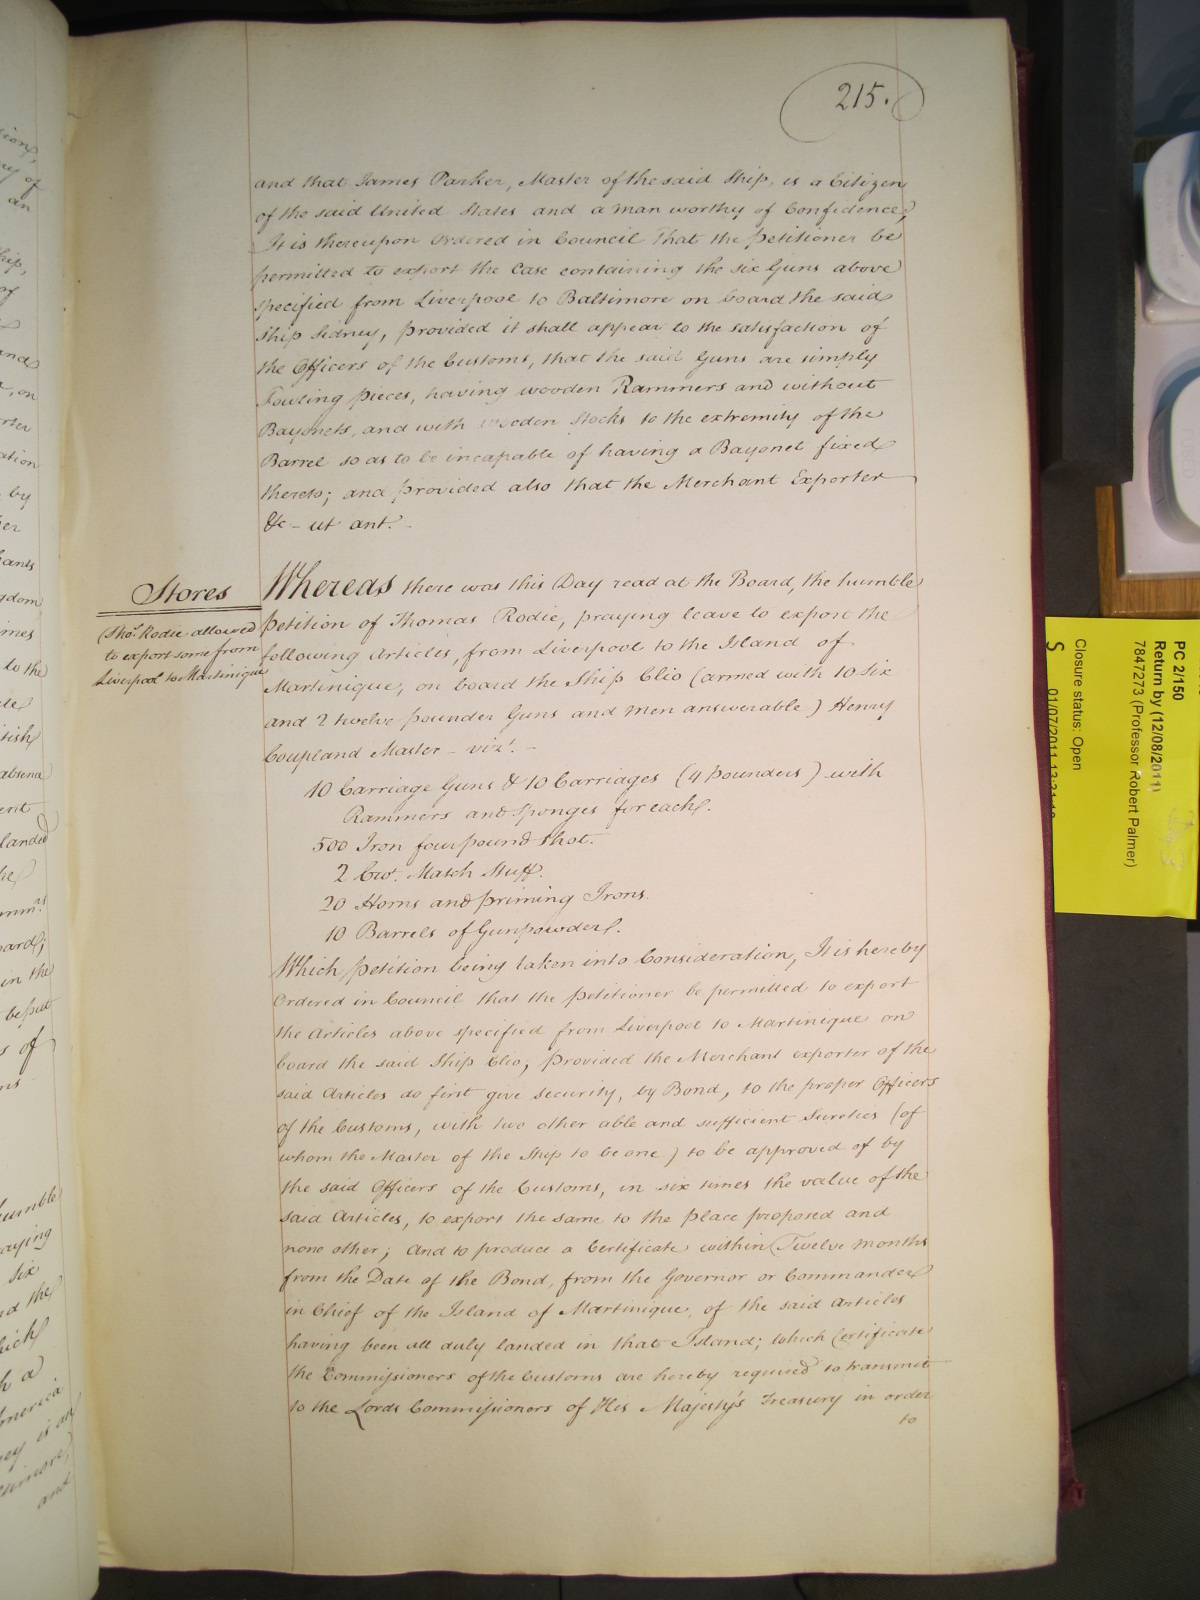 215.
and that James Parker, Master of the said Ship, is a Citizen
of the said United States and a man worthy of Confidence;
It is thereupon Ordered in Council That the Petitioner be
permitted to export the Case containing the six Guns above
specified from Liverpool to Baltimore on board the said
Ship Sidney, provided it shall appear to the satisfaction of
the Officers of the Customs, that the said Guns are simply
Fowling pieces, having wooden Rammers and without
Bayonets, and with wooden Stocks to the extremity of the
Barrel so as to be incapable of having a Bayonet fixed
thereto; and provided also that the Merchant Exporter
&c - ut ant. -
Stores
(Thos. Rodie allowed
to export some from
Liverpool to Martinique
Whereas there was this Day read at the Board, the humble
Petition of Thomas Rodie, praying leave to export the
following Articles, from Liverpool to the Island of
Martinique, on board the Ship Clio (armed with 10 Six
and 2 twelve pounder Guns and Men answerable) Henry
Coupland Master - vizt. -
10 Carriage Guns & 10 Carriages (4 pounders) with
Rammers and Sponges for each.
500 Iron four pound Shot.
2 Cwt. Match Stuff.
20 Horns and priming Irons.
10 Barrels of Gunpowder.
Which petition being taken into Consideration, It is hereby
Ordered in Council that the Petitioner be permitted to export
the Articles above specified from Liverpool to Martinique on
board the said Ship Clio, provided the Merchant exporter of the
said Articles do first give security, by Bond, to the proper Officers
of the Customs, with two other able and sufficient Sureties (of
whom the Master of the Ship to be one) to be approved of by
the said Officers of the Customs, in six times the value of the
said Articles, to export the same to the place proposed and
none other; And to produce a Certificate within Twelve Months
from the Date of the Bond, from the Governor or Commander
in Chief of the Island of Martinique, of the said Articles
having been all duly landed in that Island; which Certificate
the Commissioners of the Customs are hereby required to transmit
to the Lords Commissioners of His Majesty's Treasury in order
to
PC 2/150
Return by (12/08/2011)
7847273 (Professor Robert Palmer)
Closure status: Open
01/07/2011
S